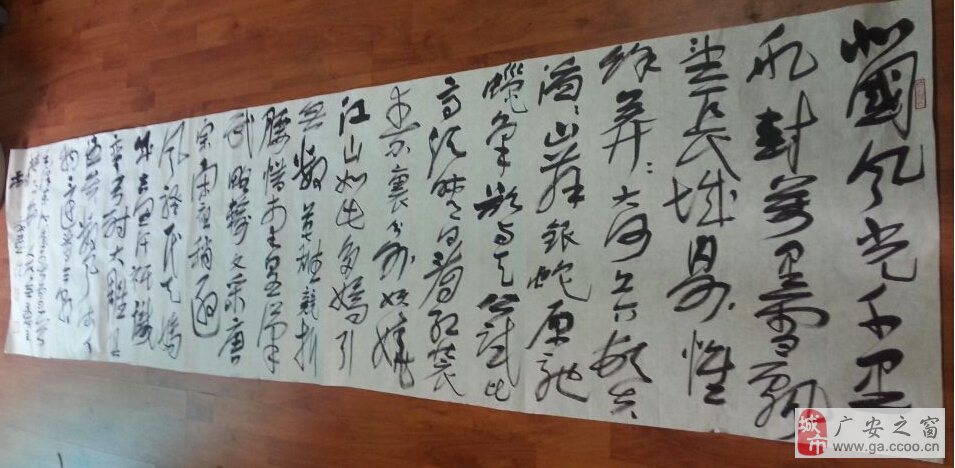 北國风光千里
冰封萬里雪飘
望长城内外惟
餘莽〻大河上下顿失
滔〻山舞银蛇原驰
蠟象欲与天公试比
高须晴日看红装
素裹分外妖娆
江山如此多嬌引
無数英雄競折
腰惜秦皇漢
武略输文采唐
宗宋祖稍逊
风骚一代天嬌
成吉思汗祇識
弯弓射大雕俱
往矣数风流人
物还看今朝
城市
广安之窗
www.ga.ccoo.cn